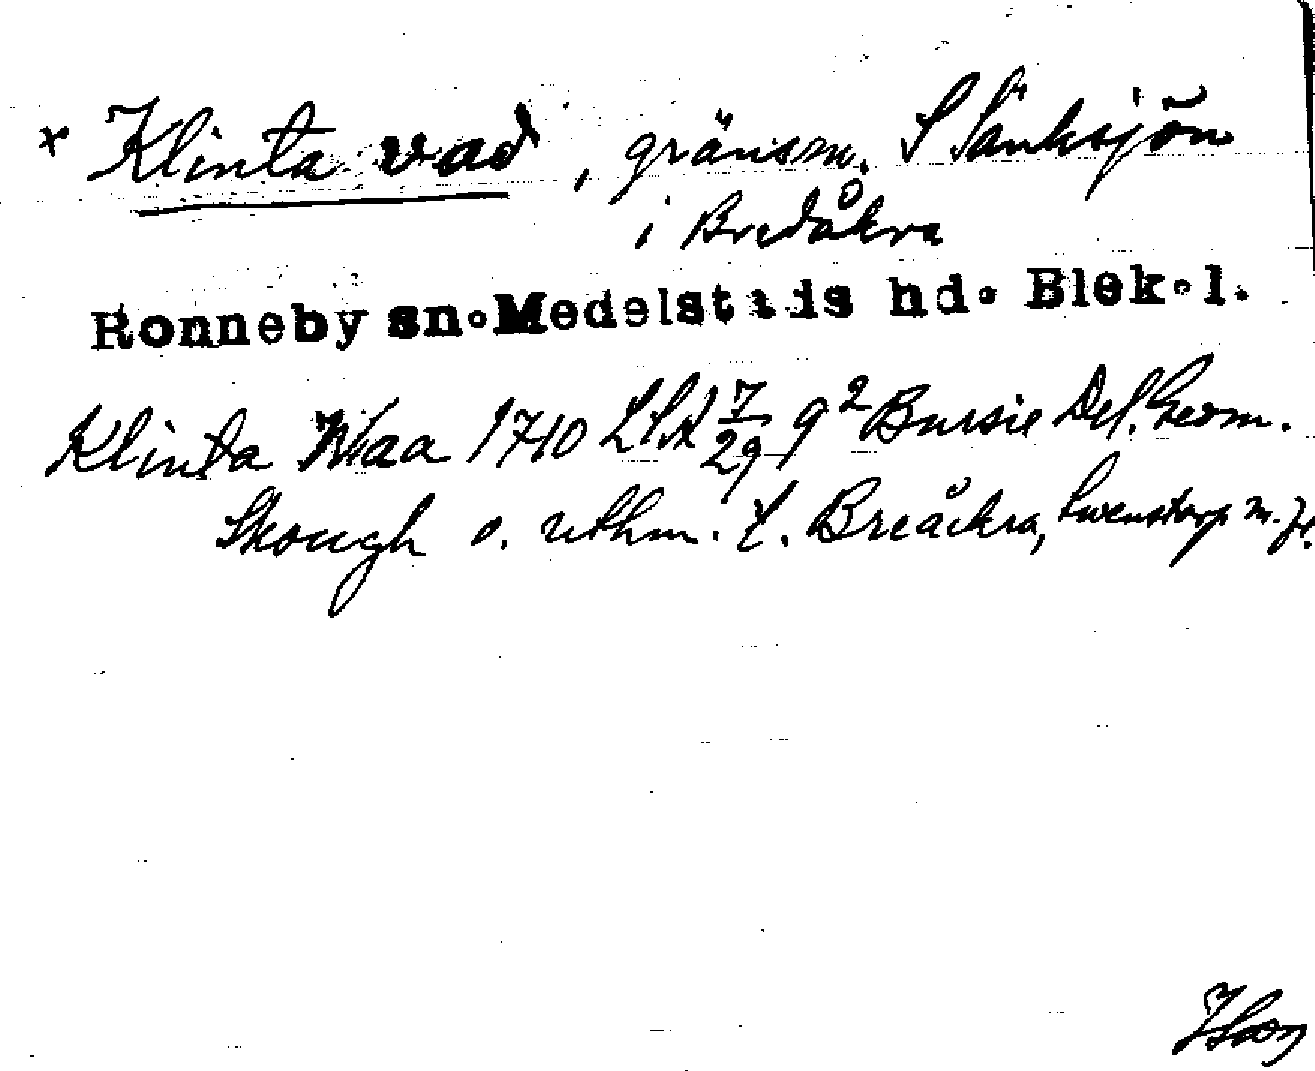 x Klinta vad, gränsm. S Sänksjön
i Bredåkra
Ronneby sn. Medelstads hd. Blek. l.
Klinta Waa 1710 LSA 7/29 q² Bursie Del. Geom.
Skough o. uthm. t. Breåckra, Swenstorp m. fl.